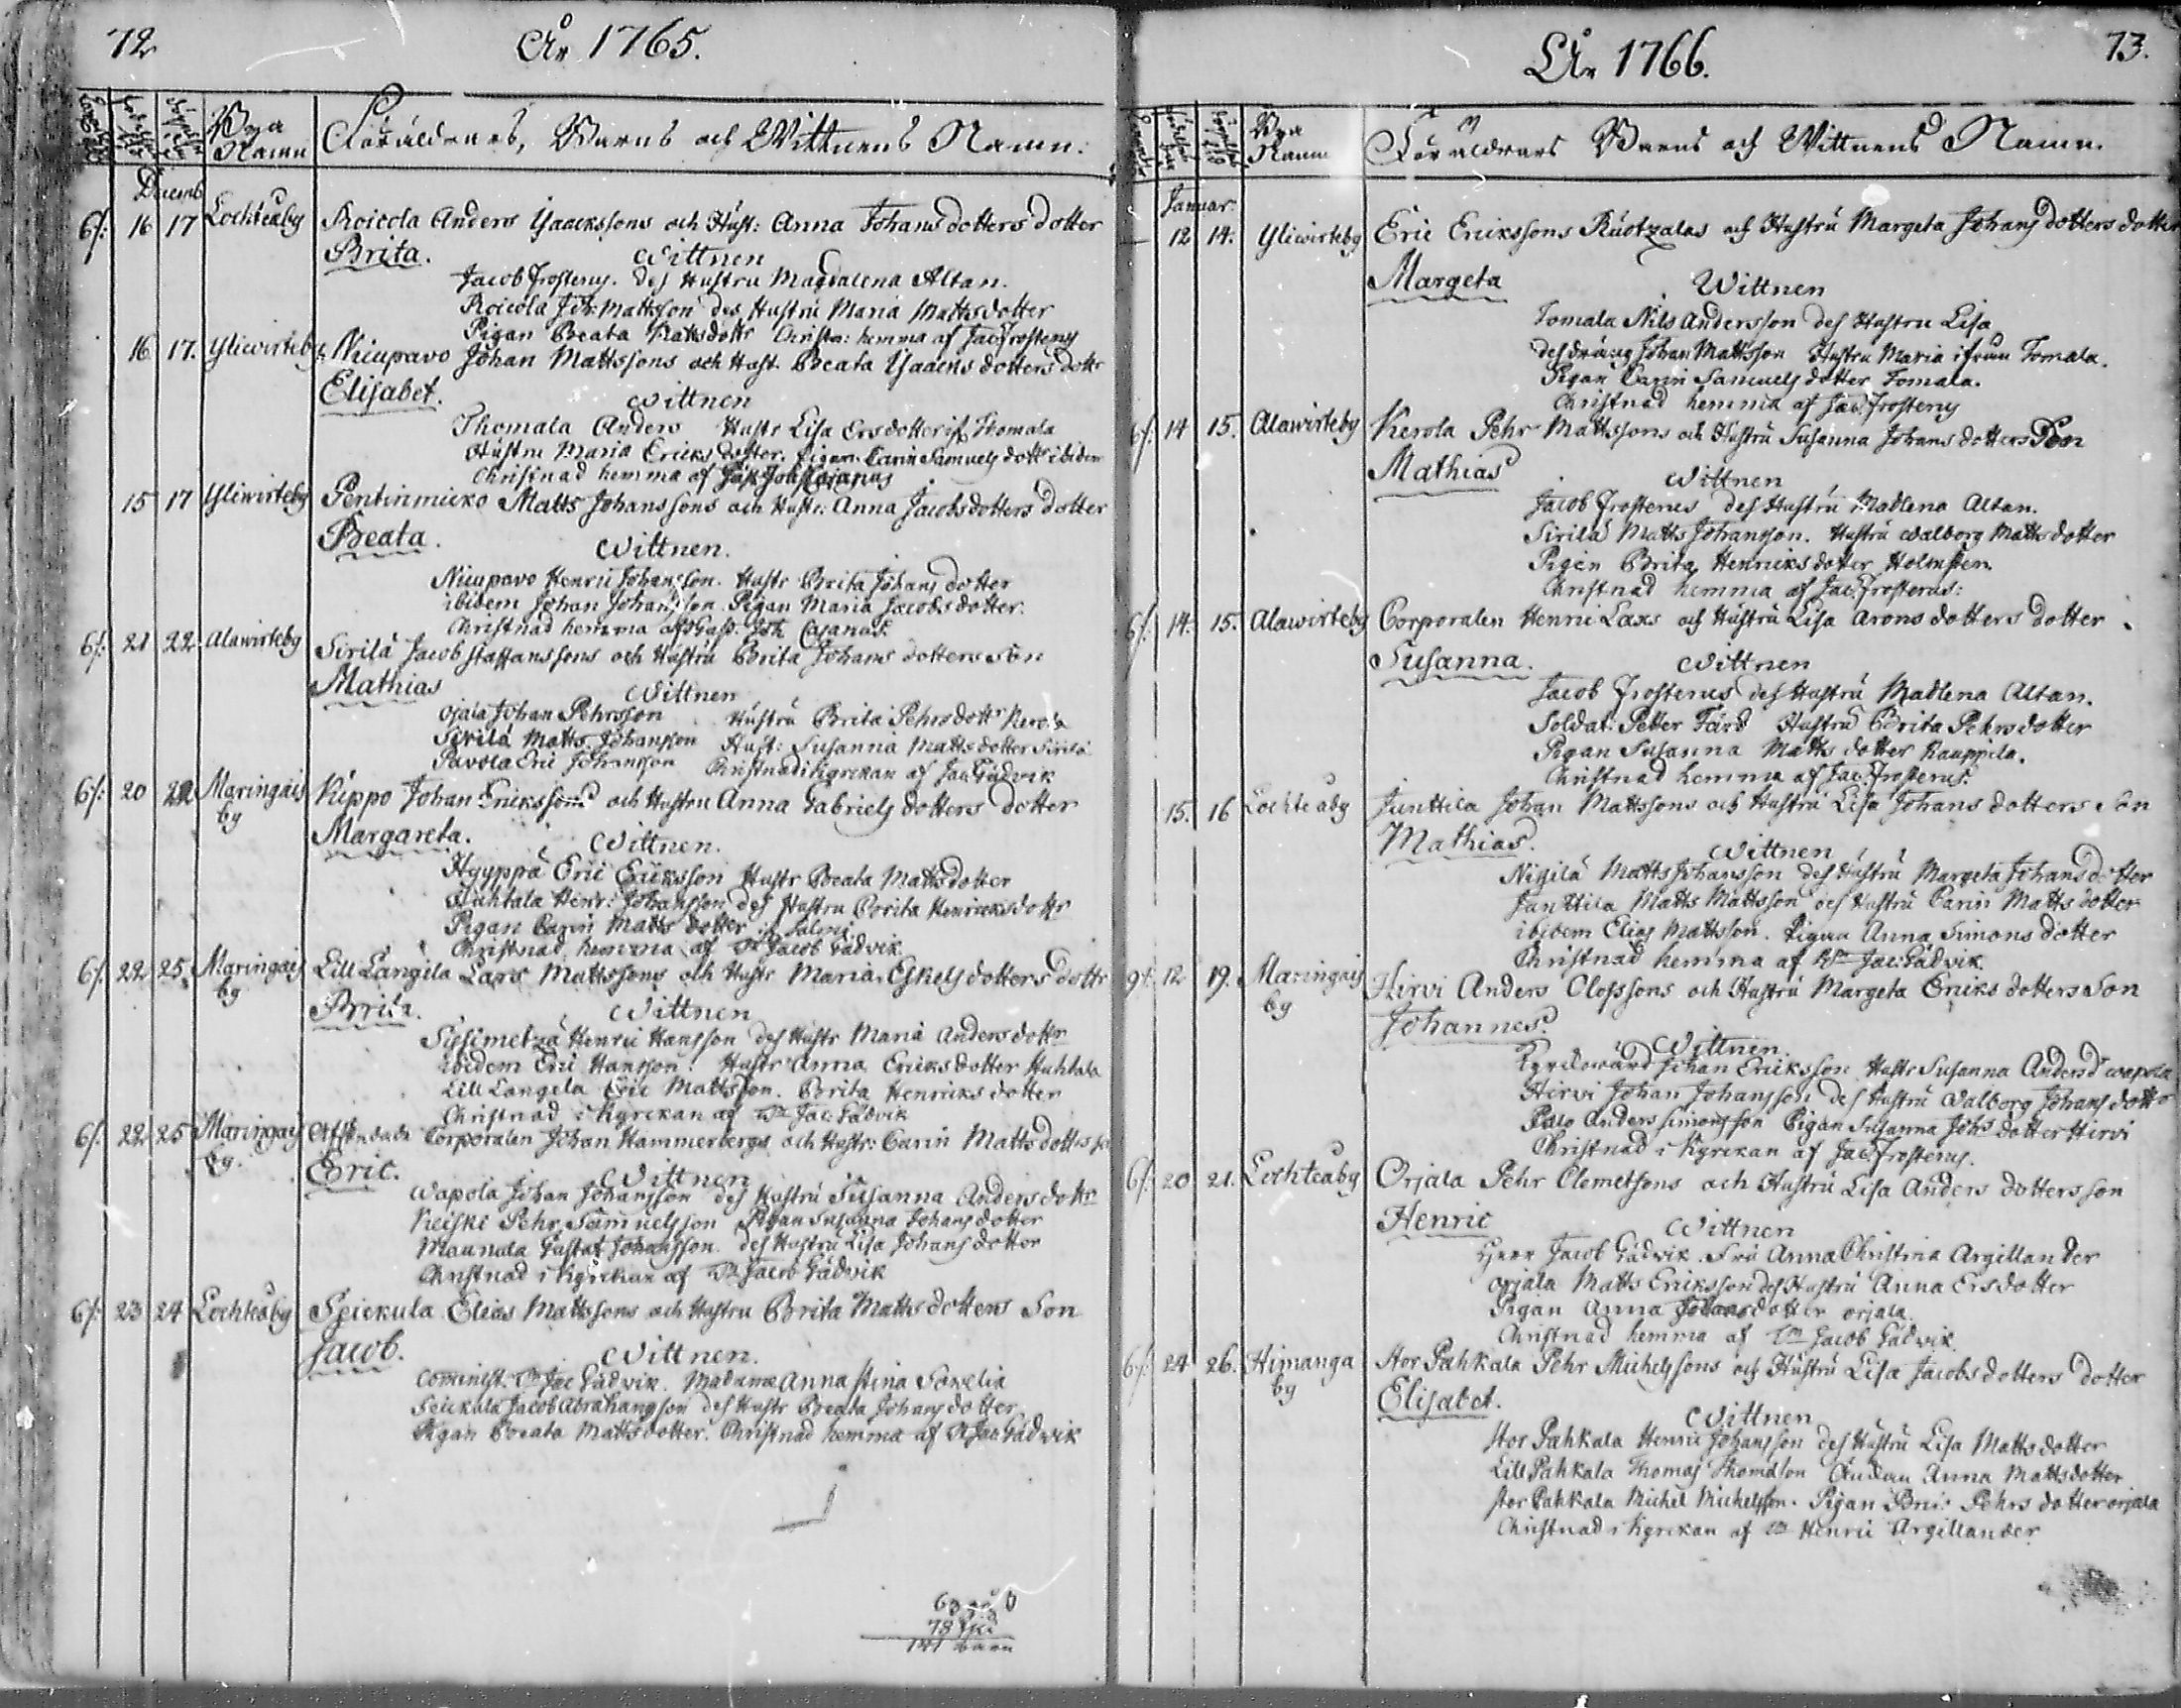 72
År 1765.
Bya Namn
Föräldrars, Barns och Wittnens Namn.
Decemb
6/: 16 17 Lochteåby Roicola Anders Isaackssons och Hust: Anna Johans dotters dotter
Brita. Wittnen
Jacob Frosterus. des Hustru Magdalena Altan.
Roicola Joh: Mattsson des Hustru Maria Matts dotter
Pigan Beata Mattsdottr Christn: hemma af Jac Frosterus
16 17. Yliwirteby Nicupavo Johan Mattssons och Hust. Beata Isaacks dotters dottr
Elisabet. Wittnen
Thomala Anders Hustr Lisa Ersdotter if. Thomala
Hustru Maria Ericks dotter. Pigan Carin Samuels dottr ibidem
Christnad hemma af Joh Cajanus
15 17 Yliwirteby Pentinmicko Matts Johanssons och Hustr: Anna Jacobs dotters dotter
Beata. Wittnen.
Nicupavo Henric Johansson. Hustr Brita Johans dotter
ibidem Johan Johansson Pigan Maria Jacobs dotter.
Christnad hemma af Joh Cajanus.
6/: 21 22. Alawirteby Sirilä Jacob Staffanssons och Hustru Brita Johans dotters Son
Mathias Wittnen
Ojala Johan Pehrsson Hustru Brita Pehrsdottr Kerola
Sirilä Matts Johansson Hust: Susanna Matts dotter Sirilä
Pavola Eric Johansson Christnad i Kyrckan af Jac Gadwik
6/: 20 22 Maringais by Kippo Johan Erikssons och Hustru Anna Gabriels dotters dotter
Margareta. Wittnen.
Hyyppä Eric Ericksson Hustr Beata Matts dotter
Huhtala Henr: Johansson des Hustru Brita Henricksdottr
Pigan Carin Matts dotter if Salmi
Christnad hemma af Jacob Gadwik
6/: 22 25. Maringais by Lill Långila Lars Mattssons och Hustr Maria Eskels dotters dottr
Brita. Wittnen
Sissimetzä Henric Hansson des Hustr Maria Anders dottr
ibidem Eric Hansson. Hustr Anna Ericks dotter Huhtala
Lill Langela Eric Mattsson. Brita Henricks dotter
Christnad i Kyrckan af Jac: Gadwik
6/: 22 25 Maringais by. Corporalen Johan Hammerbergs och Hustr: Carin Matts dotters so
Eric. Wittnen
Wapola Johan Johansson des Hustru Susanna Anders dottr
Keiski Pehr Samuelsson Pigan Susanna Johans dotter
Maunula Gustaf Johansson. des Hustru Lisa Johans dotter
Christnad i Kyrckan af Jacob Gadwik
6/: 23 24 Lochteåby Speickula Elias Mattssons och Hustru Brita Matts dotters Son
Jacob. Wittnen.
Cominist: Jac Gadwik. Madame Anna Stina Sorelia
Speickula Jacob Abrahamsson des Hustr Beata Johans dotter
Pigan Beata Matts dotter. Christnad hemma af Jac Gadwik
63
78
141 barn
År 1766.
73.
Bya Namn
Föräldrars Barns och Wittnens Namn.
Januar.
12 14. Yliwirteby Eric Erickssons Ruotzalas och Hustru Margeta Johans dotters dotter
Margeta Wittnen
Tomala Nils Andersson des Hustru Lisa
des dräng Johan Mattsson Hustru Maria ifrån Tomala.
Pigan Carin Samuels dotter Tomala.
Christnad hemma af Jac. Frosterus
6/: 14 15. Alawirteby Kerola Pehr Mattssons och Hustru Susanna Johans dotters Son
Mathias Wittnen
Jacob Frosterus des Hustru Madlena Altan.
Sirilä Matts Johansson. Hustru Walborg Matts dotter
Pigan Brita Henricks dotter Holmsten
Christnad hemma af Jac. Frosterus:
6/: 14. 15. Alawirteby Corporalen Henric Laxs och Hustru Lisa Arons dotters dotter
Susanna. Wittnen
Jacob Frosterus des Hustru Madlena Altan.
Soldat: Petter Färd Hustru Brita Pehrs dotter
Pigan Susanna Matts dotter Kauppila.
Christnad hemma af Jac. Frosterus.
15. 16 Lochteåby Junttila Johan Mattssons och Hustru Lisa Johans dotters Son
Mathias. Wittnen
Nikilä Matts Johansson des Hustru Margeta Johans dotter
Junttila Matts Mattsson och Hustru Carin Matts dotter
ibidem Elias Mattsson. Pigan Anna Simons dotter
Christnad hemma af Jac: Gadwik.
9/: 12 19. Maringais by Hirvi Anders Olofssons och Hustru Margeta Ericks dotters Son
Johannes. Wittnen
Kyrckowärd Johan Ericksson Hustr Susanna Andersd Wapola
Hirvi Johan Johansson des Hustru Walborg Johans dottr
Palo Anders Simonsson Pigan Susanna Johs dotter Hirvi
Christnad i Kyrckan af Jac Frosterus.
6/: 20 21. Lochteåby Orjala Pehr Clemetsons och Hustru Lisa Anders dotters son
Henric Wittnen
Herr Jacob Gadwik. Fru Anna Christina Argillander
Orjala Matts Ericksson des Hustru Anna Ersdotter
Pigan Anna Johansdotter Orjala.
Christnad hemma af Jacob Gadwik.
6/: 24 26. Himanga by Stor Pahkala Pehr Michelssons och Hustru Lisa Jacobs dotters dotter
Elisabet. Wittnen
Stor Pahkala Henric Johansson des Hustru Lisa Matts dotter
Lill Pahkala Thomas Thomasson Anna Matts dotter
Stor Pahkala Michel Michelsson. Pigan Bri: Pehrs dotter Orjala
Christnad i Kyrckan af Henric Argillander